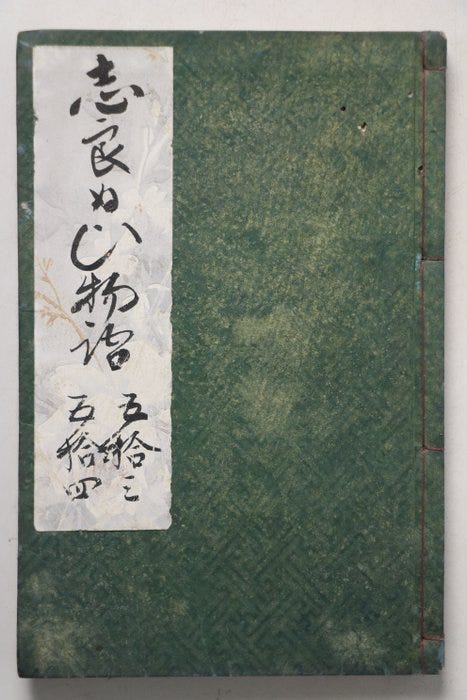 志良ぬひ物語
五拾三
五拾四